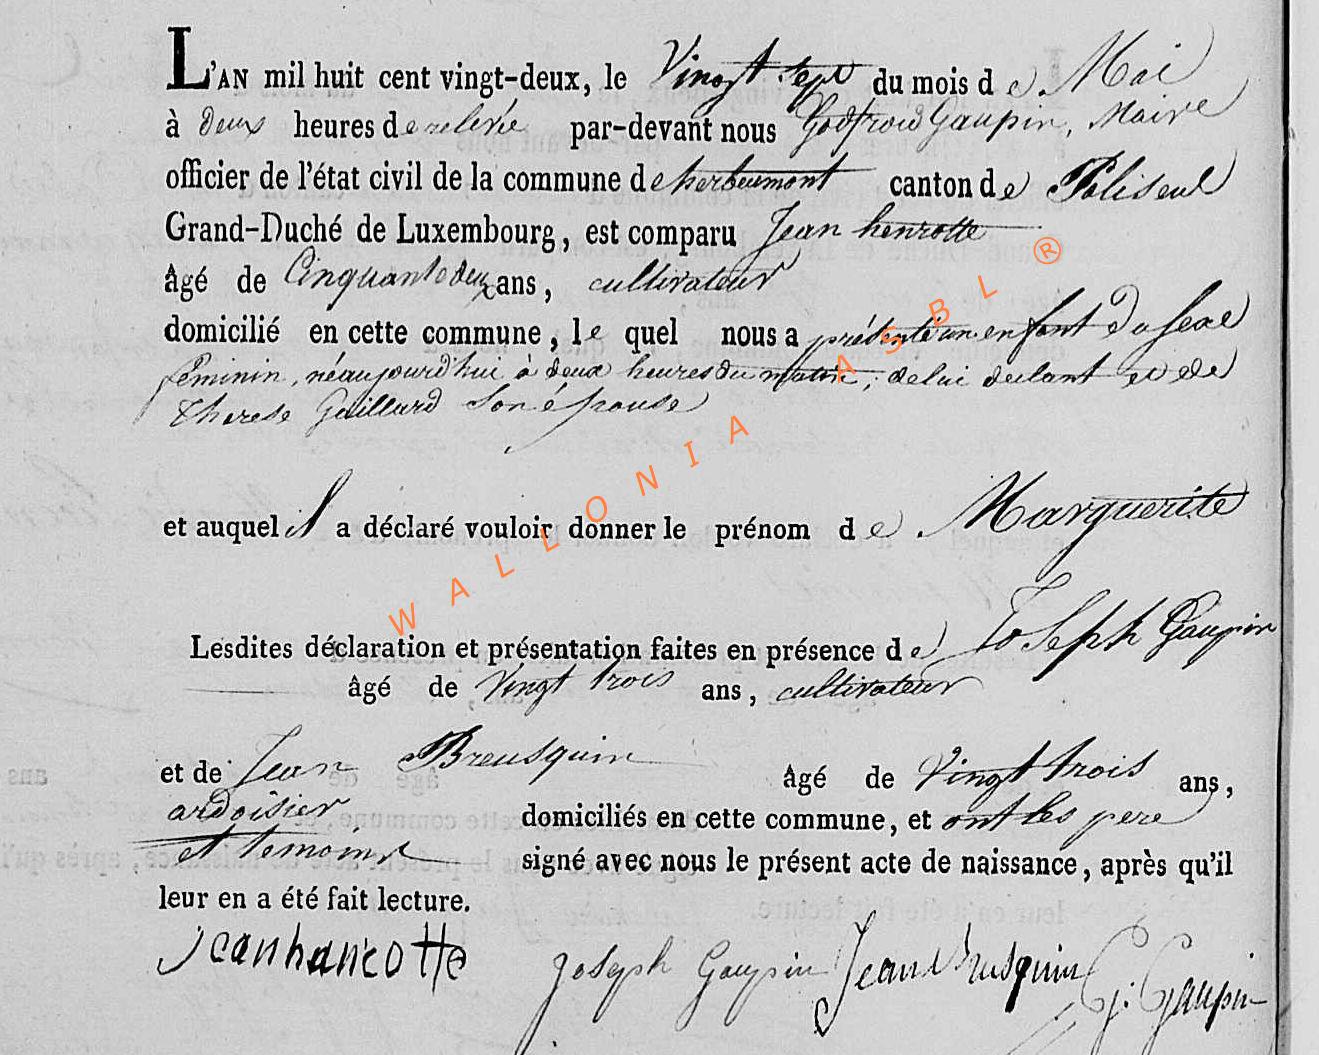 L'AN mil huit cent vingt-deux, le Vingt sept du mois de Mai
à deux heures de relevée par-devant nous Godfroid Gaupin, Maire
officier de l'état civil de la commune de herbeumont canton de Paliseul
Grand-Duché de Luxembourg, est comparu Jean henrotte
âgé de Cinquante deux ans, cultivateur
domicilié en cette commune, le quel nous a présenté un enfant du sexe
féminin, né aujourd'hui à deux heures du matin, de lui declarant et de
therese Guillard Son épouse
et auquel il a déclaré vouloir donner le prénom de Marguerite
Lesdites déclaration et présentation faites en présence de Joseph Gaupin
âgé de Vingt trois ans, cultivateur
et de Jean Breusquin âgé de Vingt trois ans,
ardoisier domiciliés en cette commune, et ont les pere
et temoins signé avec nous le présent acte de naissance, après qu'il
leur en a été fait lecture.
jean hanrotte Joseph Gaupin Jean Brusquin G. Gaupin
WALLONIA ASBL ®